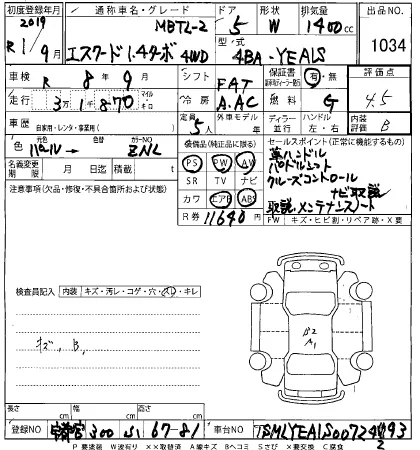 初度登録年月 通称車名・グレード ドア 形状 排気量 出品NO
2019 MBTL-2 5 W 1400cc
R1年9月 エスクード1.4ターボ4WD 型式 4BA-YEA1S 1034
車検 R8年9月 シフト FAT 保証書 有・無 評価点
走行 3万1千870 マイル キロ 冷房 A.AC 燃料 G 4.5
車歴 自家用・レンタ・事業用( ) 定員 5人 外車モデル 年 ディーラー 並行 ハンドル 左・右 内装評価 B
色 パール→ 色替 カラーNO ZNL 装備品(純正品に限る) セールスポイント(正常に機能するもの)
名義変更期限 月 日迄 積載 t PS PW AW 革ハンドル
パドルシフト
注意事項(欠品・修復・不具合箇所および状態) SR TV ナビ クルーズコントロール
カワ エアB ABS ナビ取説
取説、メンテナンスノート
R券 11640円 FW キズ・ヒビ割・リペア跡・X要
検査員記入 内装 キズ・汚レ・コゲ・穴・スレ・キレ
キズ、B、
U2
A1
長さ cm 幅 cm 高さ cm
登録NO 宇都宮 300 67-81 車台NO TSMLYEA1S00724093
2
P要塗装 W波有り ××取替済 A線キズ Bヘコミ Sさび ×要交換 C腐食